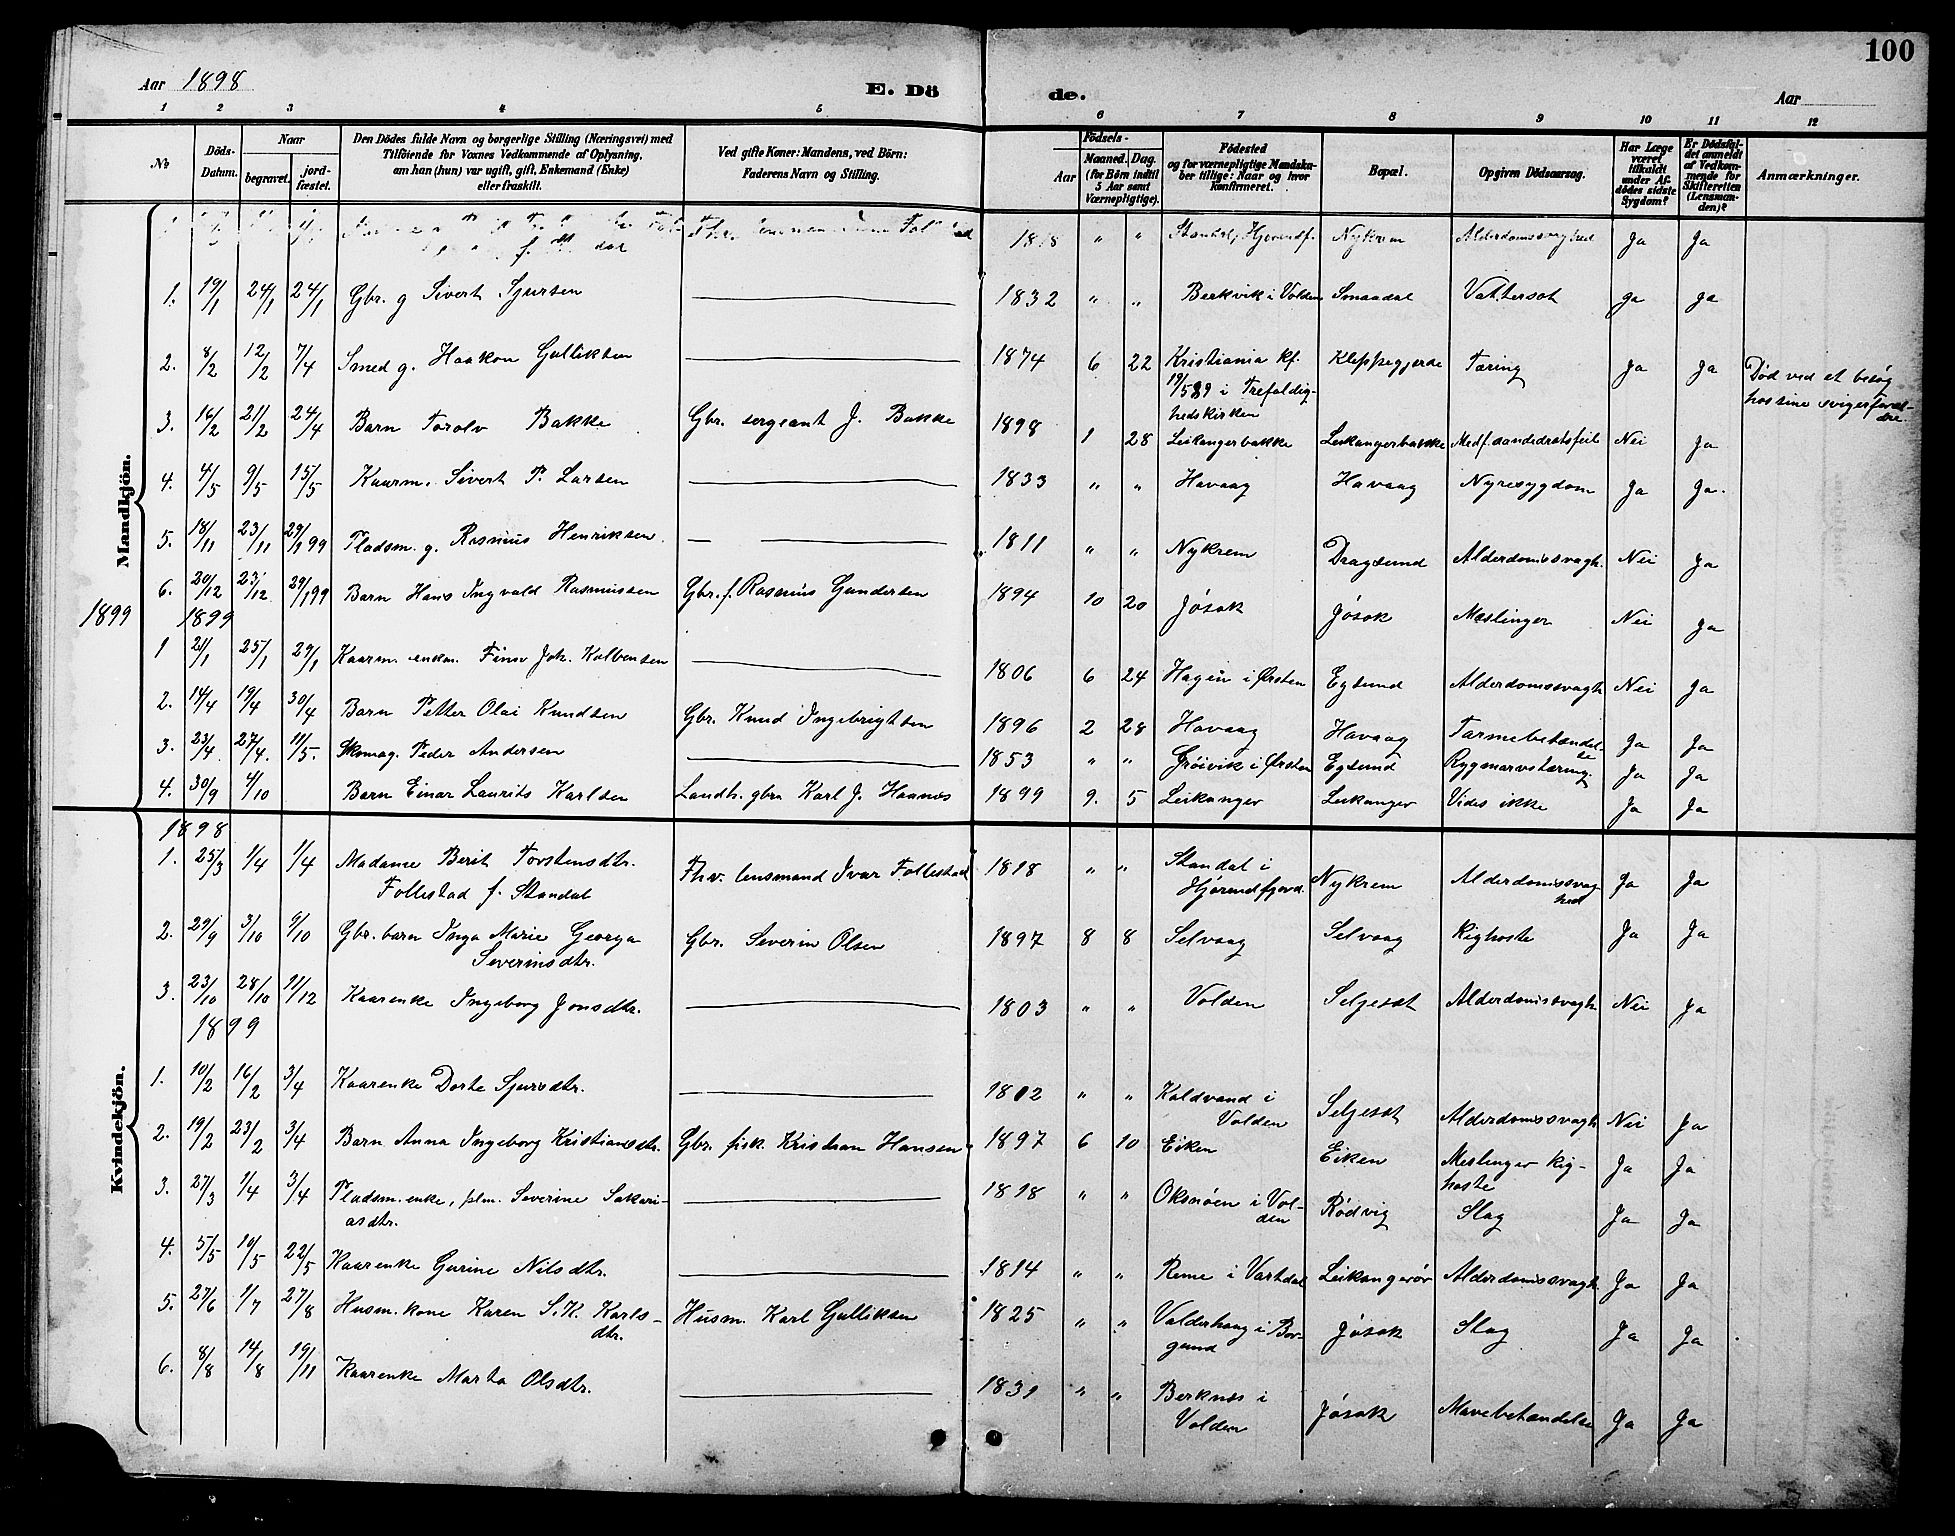 100
Aar 1898
E. Dö
de.
Aar
1 2 3 4 5 6 7 8 9 10 11 12
No
Döds-Datum.
Naar
begravet.
jord-fæstet.
Den Dödes fulde Navn og borgerlige Stilling (Næringsvei) med
Tilföiende for Voxnes Vedkommende af Oplysning,
om han (hun) var ugift, gift, Enkemand (Enke)
eller fraskilt.
Ved gifte Koner: Mandens, ved Börn:
Faderens Navn og Stilling.
Födsels-
Aar
Maaned.
Dag.
(for Börn indtil
5 Aar samt
Værnepligtige).
Födested
og for værnepligtige Mandska-
ber tillige: Naar og hvor
konfirmeret.
Bopæl.
Opgiven Dödsaarsag.
Har Læge
været
tilkaldt
under Af-
dödes sidste
Sygdom?
Er Dödsfal-
det anmeldt
af Vedkom-
mende for
Skifteretten
(Lensman-
den)?
Anmærkninger.
Mandkjön.
1818 " " Nykrem Alderdomssvaghed Ja Ja
1. 19/1 24/1 24/1 Gbr. g Sivert Sjursen 1832 " " Berkvik i Volden Smaadal Vattersot ja ja
2. 8/2 12/2 7/4 Smed g. Haakon Gulliksen 1874 6 22 Kristiania kf. Kleppegjerde Tæring Ja Ja Død ved et besøg
19/5 89 i Trefoldig- hos sine svigerforæl-
hedskirken dre.
3. 16/2 21/2 24/4 Barn Torolv Bakke Gbr. sergeant J. Bakke 1898 1 28 Leikangerbakke Leikangerbakke Medf. aandedratsfeil Nei Ja
4. 4/5 9/5 15/5 Kaarm. Sivert P. Larsen 1833 " " Havaag Havaag Nyresygdom Ja Ja.
5. 18/11 23/11 29/1 99 Pladsm. g. Rasmus Henriksen. 1811 " " Nykrem Dragsund Alderdomssvagh. Nei Ja
6. 20/12 23/12 29/1 99 Barn Hans Ingvald Rasmussen Gbr. f. Rasmus Gundersen 1894 10 20 Jøsok Jøsok Meslinger Nei Ja
1899 1899
1 21/1 25/1 29/1 Kaarm. enkm. Finn Joh. Kolbensen 1806 6 24 Hagen i Ørsten Egsund Alderdomssvagh Nei Ja
2. 14/4 19/4 30/4 Barn Petter Olai Knudsen Gbr. Knud Ingebrigtsen 1896 2 28 Havaag Havaag Tarmebetændel- Ja Ja
se
3. 23/4 27/4. 11/5. Skomag. Peder Andersen 1853 " " Grøivik i Ørsten Egsund Rygmarvstæring. Ja Ja
4. 30/9 4/10 Barn Einar Laurits Karlsen Landh. gbr. Karl J. Haanes 1899 9. 5 Leikanger Leikanger Vides ikke Ja Ja
Kvindekjön.
1898
1. 25/3 1/4 1/4 Madame Berit Torstensdtr. Fhv. lensmand Ivar Follestad 1818 " " Standal i Nykrem Alderdomssvag- Ja Ja
Follestad f. Standal Hjørundfjord. hed
2. 29/9 3/10 9/10 Gbr. barn Inga Marie Georga Gbr. Severin Olsen 1897 8 8 Selvaag Selvaag Kighoste Ja Ja
Severinsdtr.
3. 23/10 28/10 11/12 Kaarenke Ingeborg Jonsdtr. 1803 " " Volden Seljeset Alderdomssvagh Nei Ja
1899
1. 10/2 16/2 3/4 Kaarenke Dorte Sjursdtr. 1802 " " Koldvand i Seljeset Alderdomssvagh Nei Ja
Volden
2. 19/2 23/2 3/4 Barn Anna Ingeborg Kristiansdtr. Gbr. fisk. Kristian Hansen 1897 6 10 Eiken Eiken Meslinger kig- Ja Ja
hoste
3. 27/3 1/4 3/4 Pladsm. enke, plm. Severine Sakari- 1818 " " Oksnøen i Vol- Rødvig Slag Ja Ja
asdtr. den
4. 5/5 10/5 22/5 Kaarenke Gurine Nilsdtr. 1814 " " Reme i Vartdal Leikangerør Alderdomssvagh. Ja Ja
5. 27/6 1/7 27/8 Husm. kone Karen S. K. Karls- Husm. Karl Gulliksen 1825 " " Valderhaug i Bor- Jøsok Slag Ja Ja
dtr. gund
6. 8/8 14/8 19/11 Kaarenke Marta Olsdtr. 1831 " " Berknes i Jøsok Mavebetændelse Ja Ja
Volden